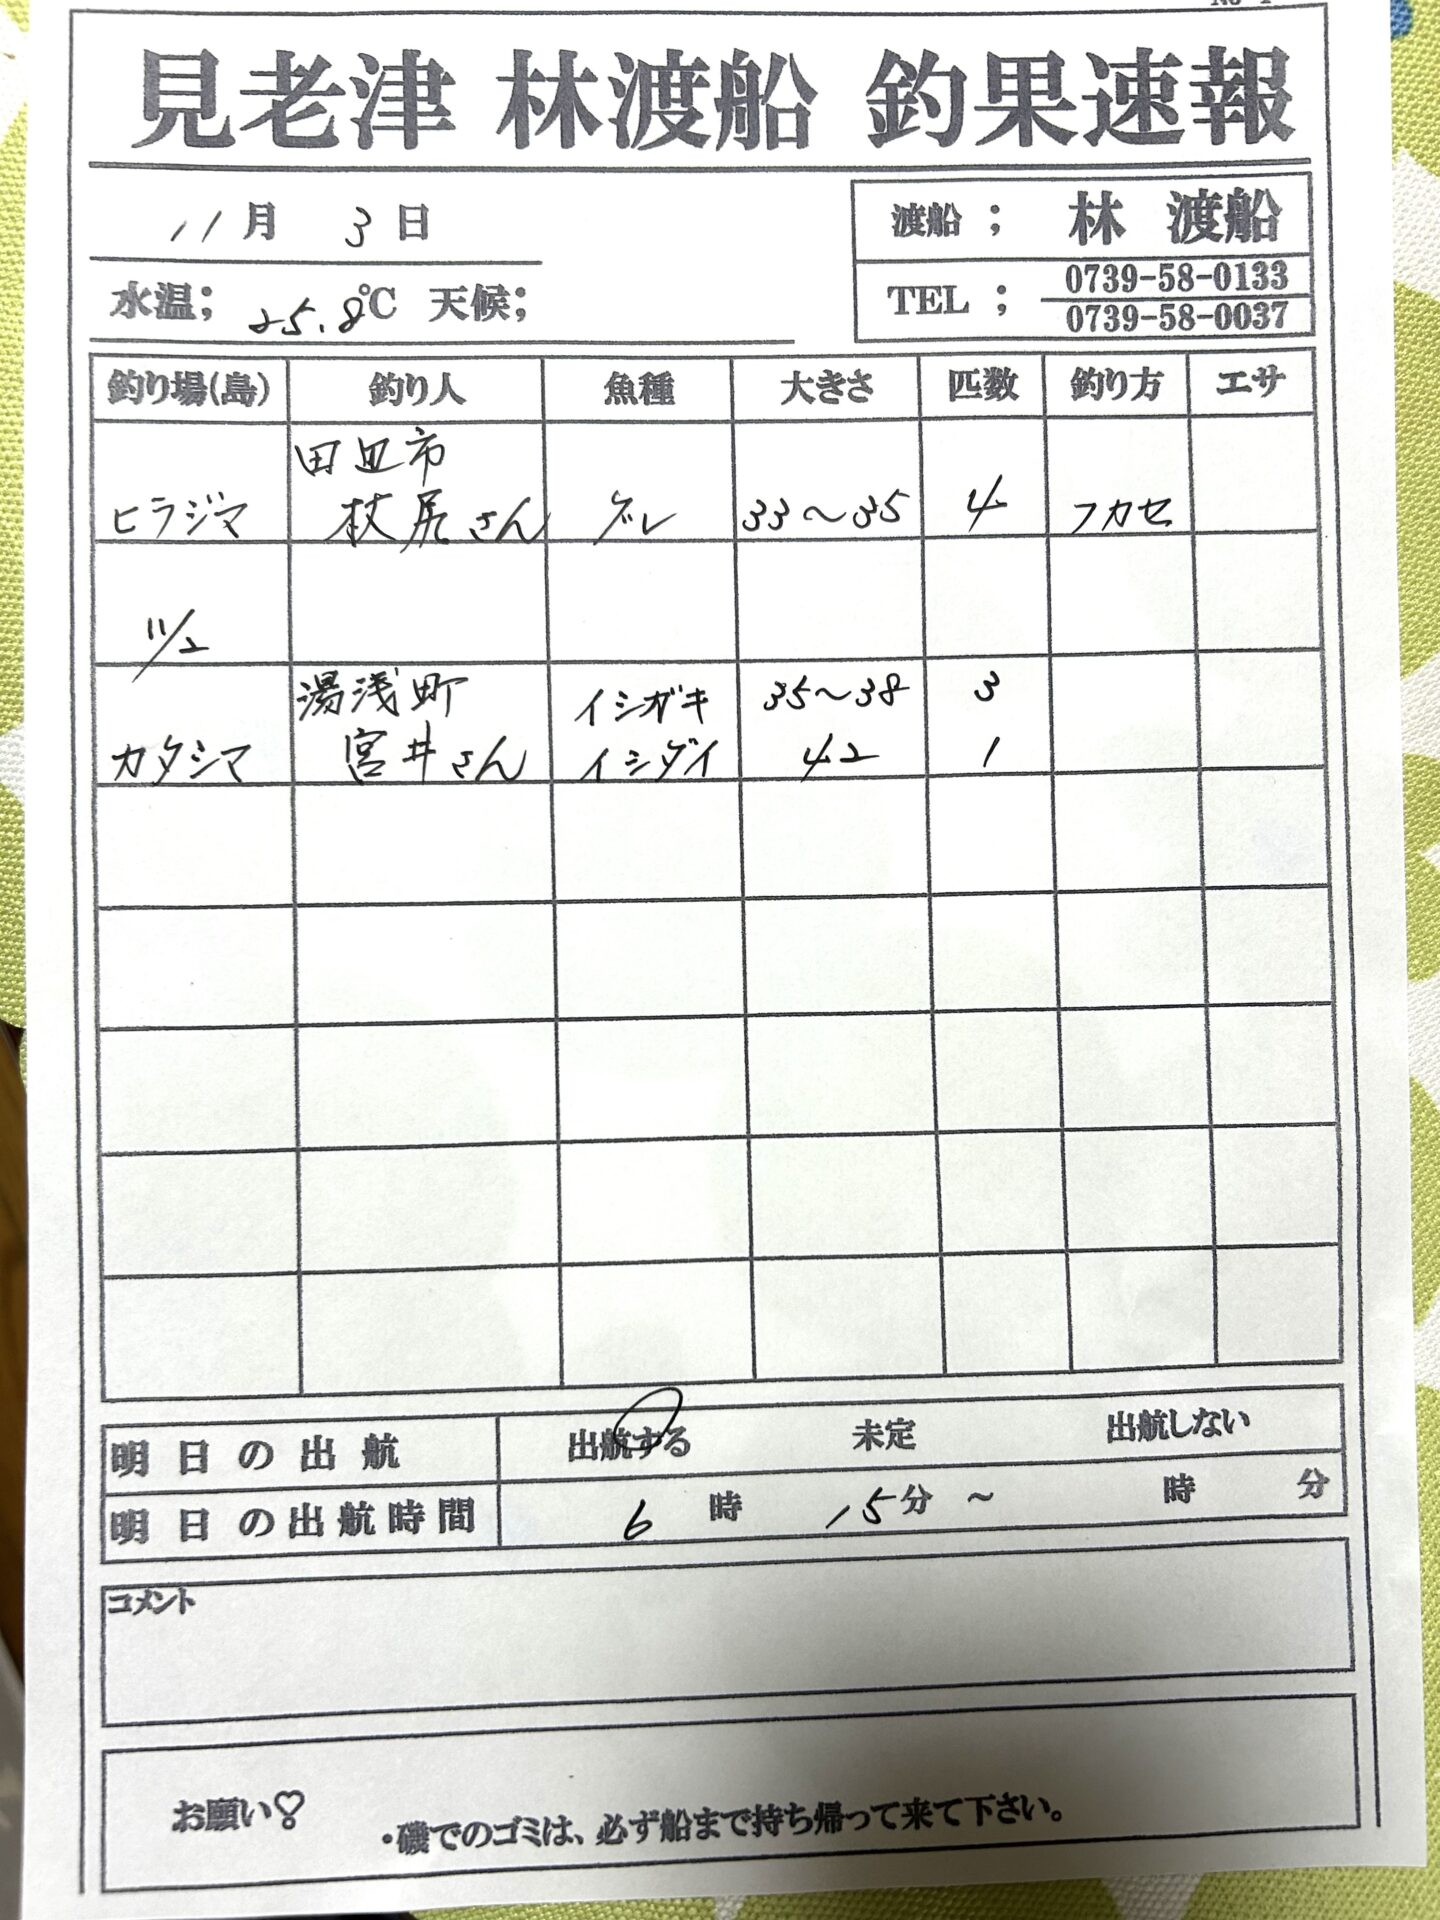 見老津 林渡船 釣果速報
11月 3日
渡船 ； 林 渡船
水温； 25.8℃ 天候；
TEL ； 0739-58-0133
0739-58-0037
釣り場(島) 釣り人 魚種 大きさ 匹数 釣り方 エサ
田辺市
ヒラジマ 杖尻さん グレ 33～35 4 フカセ
11/2
湯浅町 イシガキ 35～38 3
カタシマ 宮井さん イシダイ 42 1
明日の出航 出航する 未定 出航しない
明日の出航時間 6 時 15分 ～ 時 分
コメント
お願い♡
・磯でのゴミは、必ず船まで持ち帰って来て下さい。